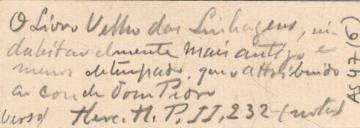 O Livro Velho das Linhagens, in
dubitavelmente mais antigo e
menos deturpado que o attribuido
ao conde Dom Pedro
Herc. H. P. II, 232 - (nota)
47 (6)